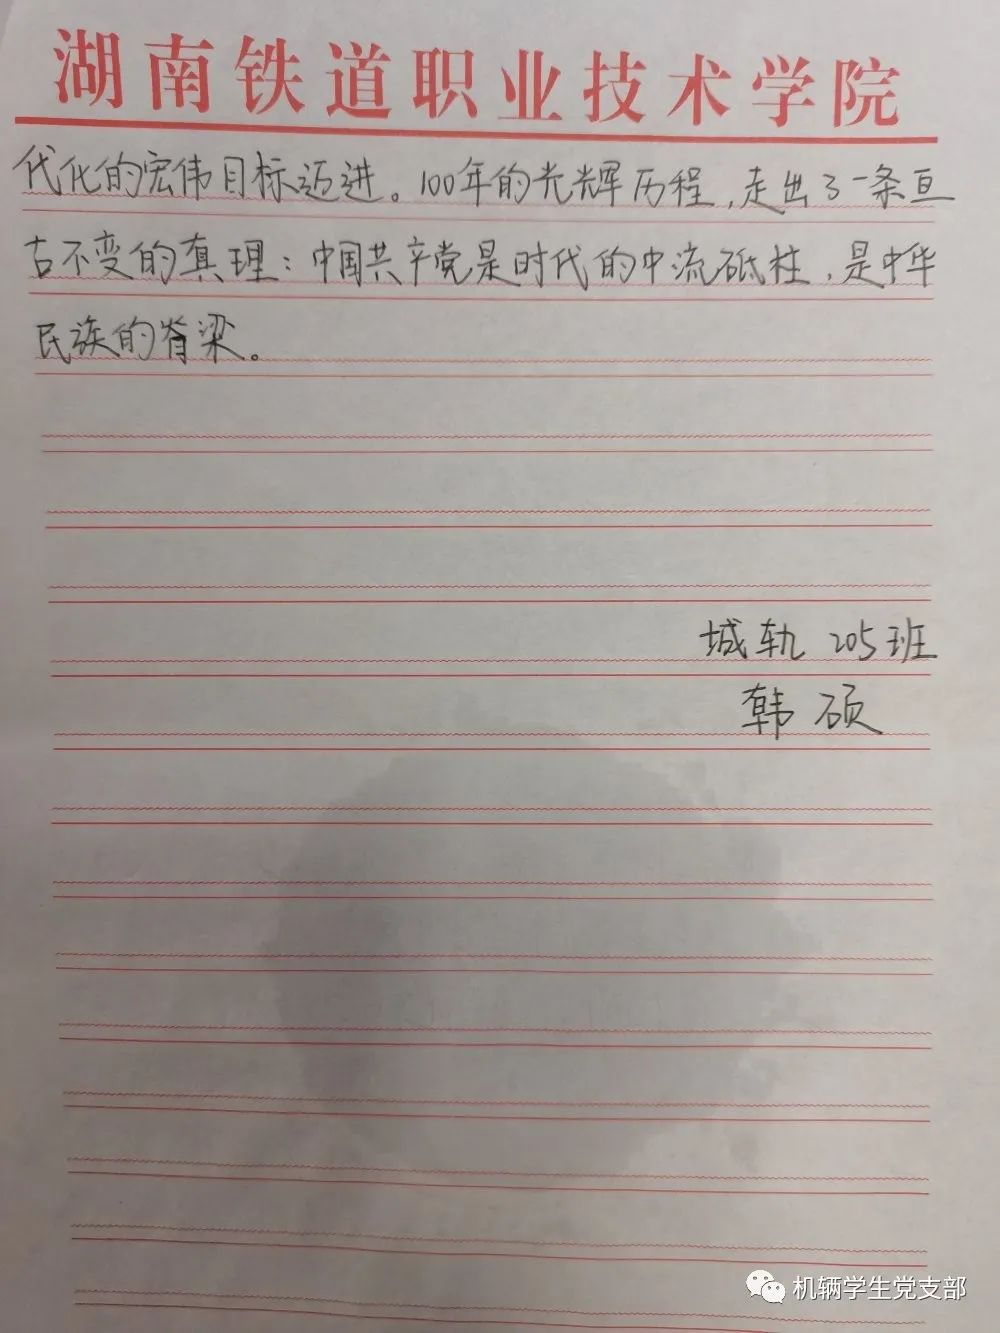 湖南铁道职业技术学院
代化的宏伟目标迈进。100年的光辉历程,走出了一条亘
古不变的真理:中国共产党是时代的中流砥柱,是中华
民族的脊梁。
城轨 205班
韩硕
机辆学生党支部